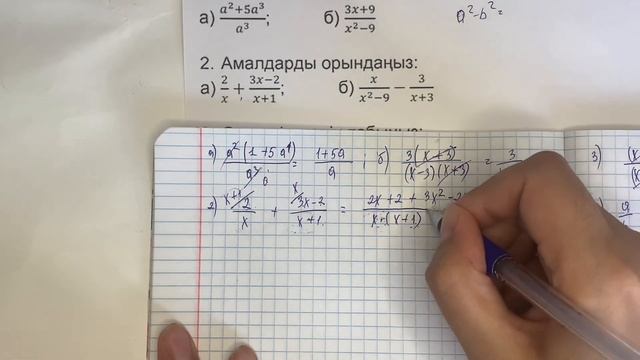 а) (a²+5a³)/a³; б) (3x+9)/(x²−9) a²−b²=
2. Амалдарды орындаңыз:
а) 2/x + (3x−2)/(x+1); б) x/(x²−9) − 3/(x+3)
a²(1+5a)/a³ = (1+5a)/a; б) 3(x+3)/((x−3)(x+3)) = 3/ 3) (x
2) 2/x + (3x−2)/(x+1) = (2x+2+3x²−2)/(x(x+1))